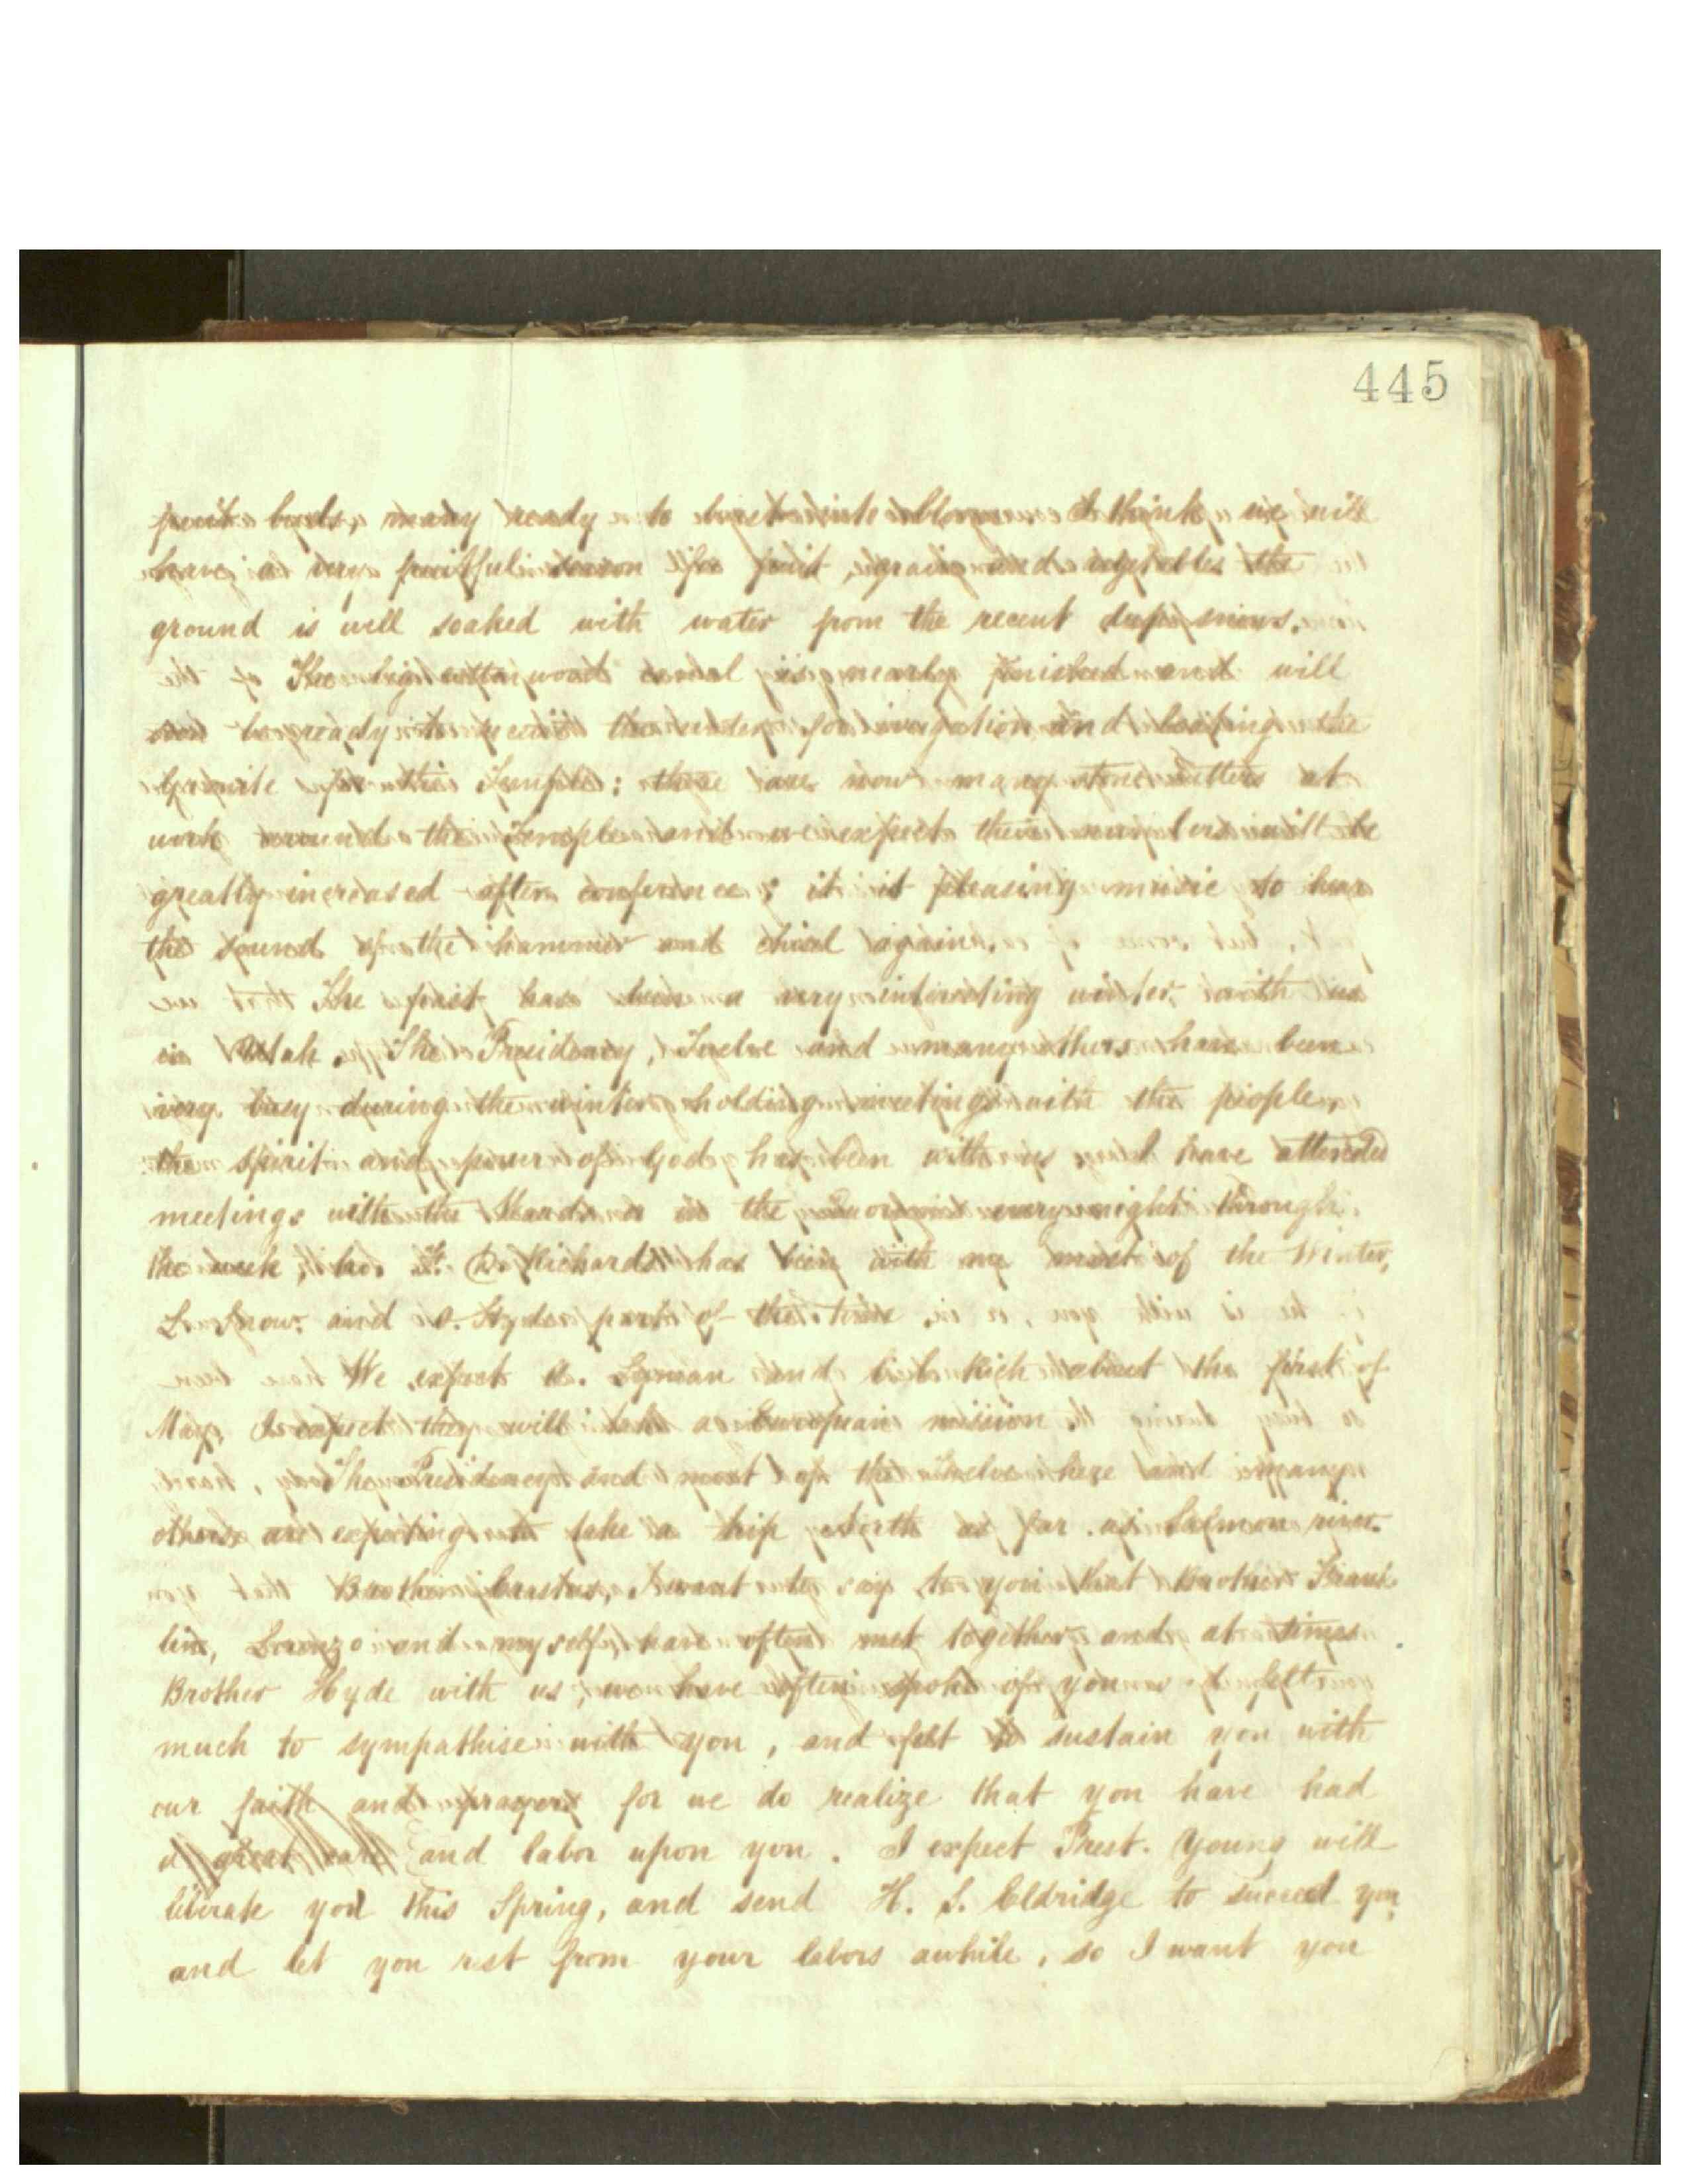 445
fruit buds, many ready to burst into bloom I think we will
have a very fruitful season for fruit, grain and vegetables the
ground is well soaked with water from the recent deep snows.
The big cottonwood canal is nearly finished and will
soon be ready to receive the water for irrigation and boating the
Granite for the Temple: there are now many stone cutters at
work around the Temple and we expect their numbers will be
greatly increased after conference; it is pleasing music to hear
the sound of the hammer and chisel again.
The past has been a very interesting winter with us
in Utah. The Presidency, Twelve and many others have been
very busy during the winter holding meetings with the people,
the spirit and power of God has been with us I have attended
meetings with the Wards or in the Quorums every night through
the week, bro. F. D. Richards has been with me most of the Winter,
L. Snow. and O. Hyde part of the time.
We expect A. Lyman and C. C. Rich about the first of
May, I expect they will take a European mission.
The Presidency and most of the Twelve here and many
others are expecting to take a trip North as far as Salmon river.
Brother Erastus, I want to say to you that Brother Frank
lin, Lorenzo and myself, have often met together, and at times
Brother Hyde with us; we have often spoke of you & felt
much to sympathise with you, and felt to sustain you with
our faith and prayers for we do realize that you have had
a great care and labor upon you. I expect Prest. Young will
liberate you this Spring, and send H. S. Eldridge to succeed you
and let you rest from your labors awhile, so I want you